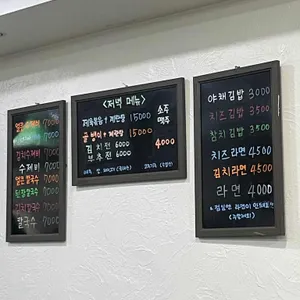 얼큰수제비 7000
7000
김치수제비 7000
수제비 7000
얼큰칼국수 7000
된장칼국수 7000
김치칼국수 7000
칼국수 7000
<저녁 메뉴>
제육볶음+계란탕 15000
골뱅이+계란탕 15000
김치전 6000
부추전 6000
소주
맥주
4000
야채김밥 3000
치즈김밥 3500
참치김밥 3500
치즈라면 4500
김치라면 4500
라면 4000